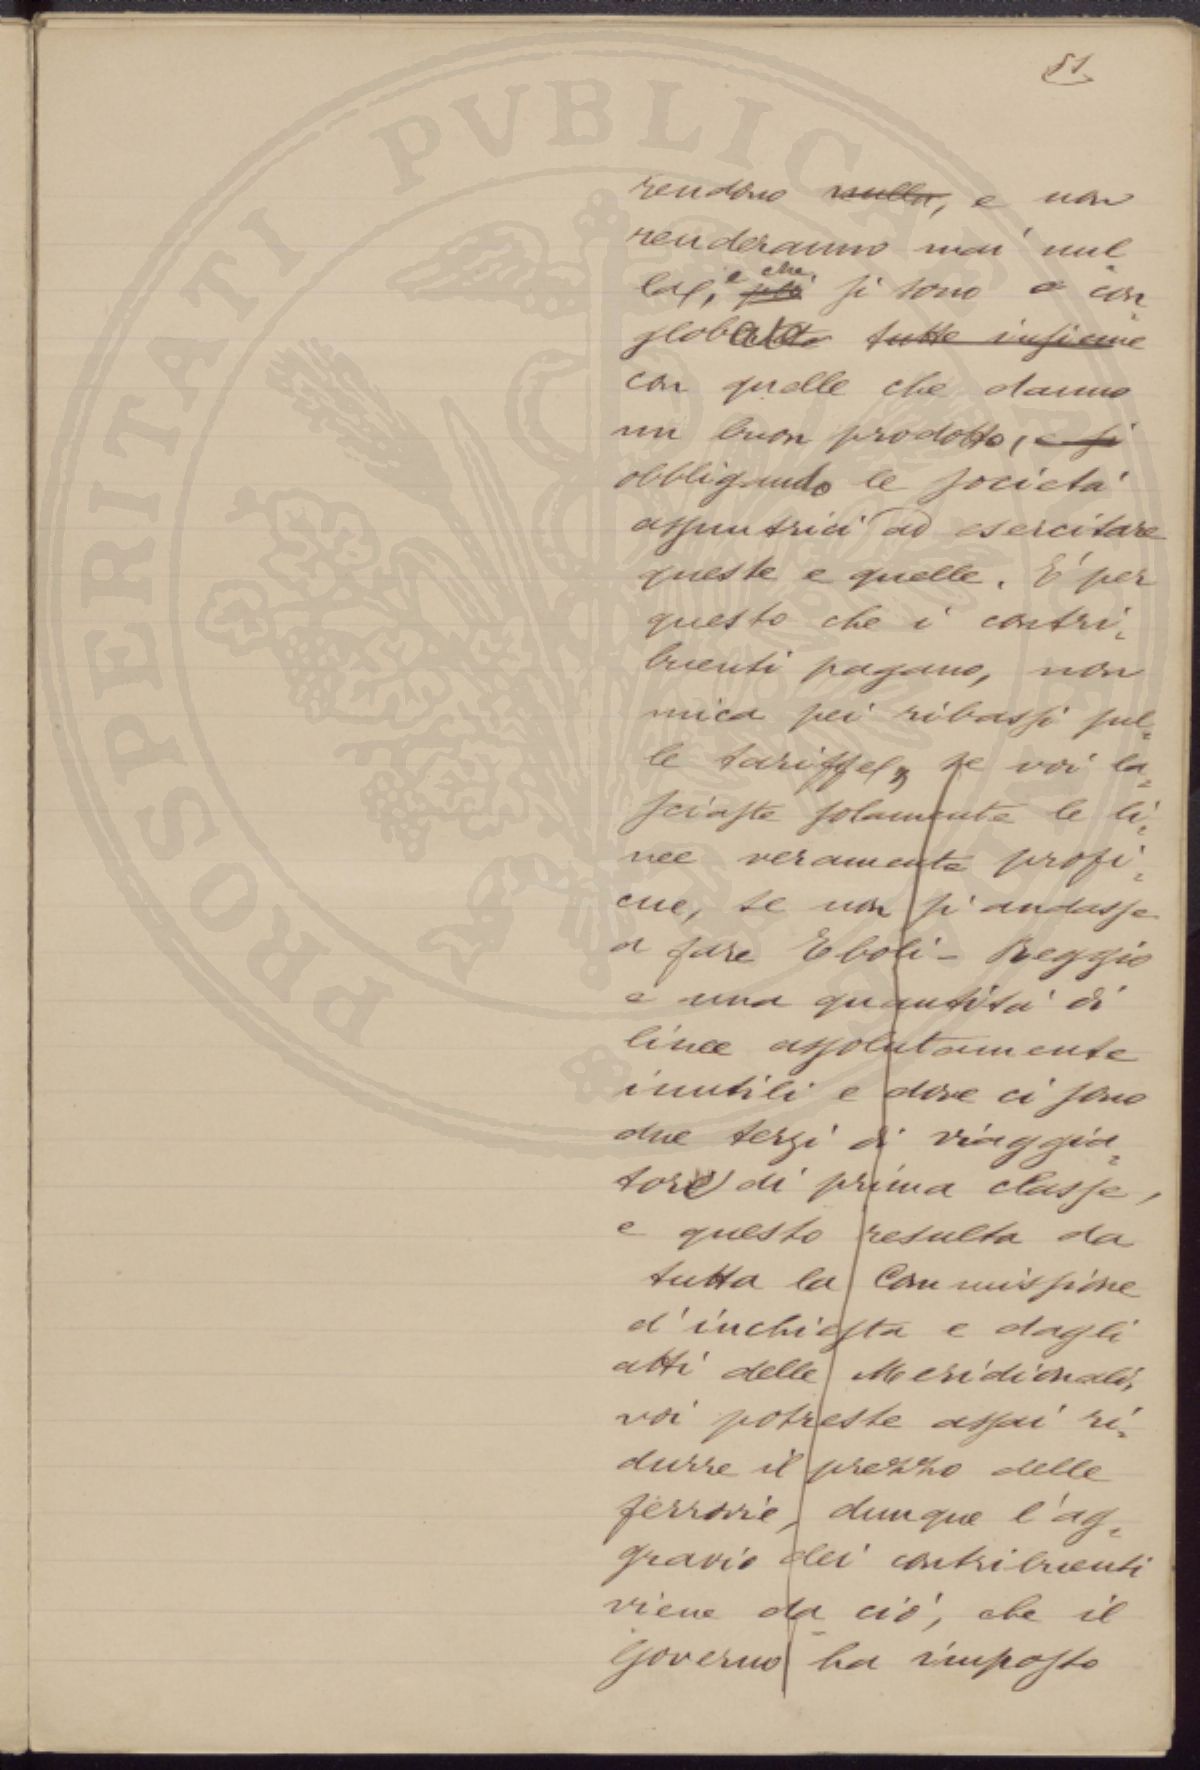 51
rendono nulla, e non
renderanno mai nul
la, e che si sono con
globate tutte insieme
con quelle che danno
un buon prodotto, e si
obbligando le società
assuntrici ad esercitare
queste e quelle. E' per
questo che i contri
buenti pagano, non
mica pei ribassi sul
le tariffe, se voi la
sciaste solamente le li
nee veramente profi
cue, se non si andasse
a fare Eboli - Reggio
e una quantità di
linee assolutamente
inutili e dove ci sono
due terzi di viaggia
tore di prima classe,
e questo resulta da
tutta la Commissione
d'inchiesta e dagli
atti delle Meridionali,
voi potreste assai ri
durre il prezzo delle
ferrovie, dunque l'ag
gravio dei contribuenti
viene da ciò, che il
Governo ha imposto
PROSPERITATI PVBLICAE